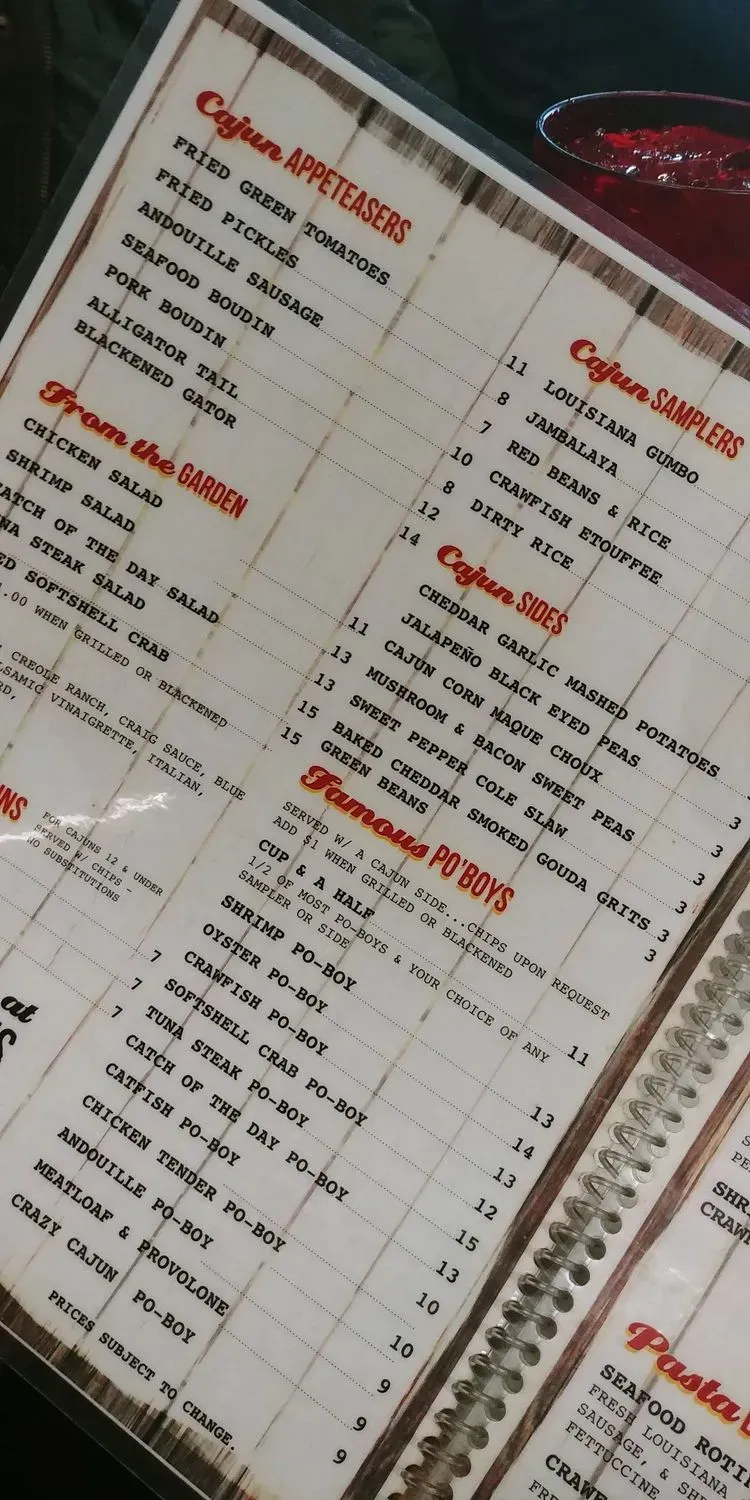 Cajun APPETEASERS
FRIED GREEN TOMATOES 11
FRIED PICKLES 8
ANDOUILLE SAUSAGE 7
SEAFOOD BOUDIN 10
PORK BOUDIN 8
ALLIGATOR TAIL 12
BLACKENED GATOR 14
From the GARDEN
CHICKEN SALAD 11
SHRIMP SALAD 13
CATCH OF THE DAY SALAD 13
TUNA STEAK SALAD 15
SOFTSHELL CRAB 15
1.00 WHEN GRILLED OR BLACKENED
CREOLE RANCH, CRAIG SAUCE, BLUE
BALSAMIC VINAIGRETTE, ITALIAN,
FOR CAJUNS 12 & UNDER
SERVED W/ CHIPS -
NO SUBSTITUTIONS
7
7
7
at
Cajun SAMPLERS
LOUISIANA GUMBO
JAMBALAYA
RED BEANS & RICE
CRAWFISH ETOUFFEE
DIRTY RICE
Cajun SIDES
CHEDDAR GARLIC MASHED POTATOES
JALAPEÑO BLACK EYED PEAS 3
CAJUN CORN MAQUE CHOUX 3
MUSHROOM & BACON SWEET PEAS 3
SWEET PEPPER COLE SLAW 3
BAKED CHEDDAR SMOKED GOUDA GRITS 3
GREEN BEANS 3
Famous PO'BOYS
SERVED W/ A CAJUN SIDE...CHIPS UPON REQUEST
ADD $1 WHEN GRILLED OR BLACKENED
CUP & A HALF 11
1/2 OF MOST PO-BOYS & YOUR CHOICE OF ANY
SAMPLER OR SIDE
SHRIMP PO-BOY 13
OYSTER PO-BOY 14
CRAWFISH PO-BOY 13
SOFTSHELL CRAB PO-BOY 12
TUNA STEAK PO-BOY 15
CATCH OF THE DAY PO-BOY 13
CATFISH PO-BOY 10
CHICKEN TENDER PO-BOY 10
ANDOUILLE PO-BOY 9
MEATLOAF & PROVOLONE 9
CRAZY CAJUN PO-BOY 9
PRICES SUBJECT TO CHANGE.
Pasta
SEAFOOD
FRESH LOUISIANA
SAUSAGE, &
FETTUCCINE